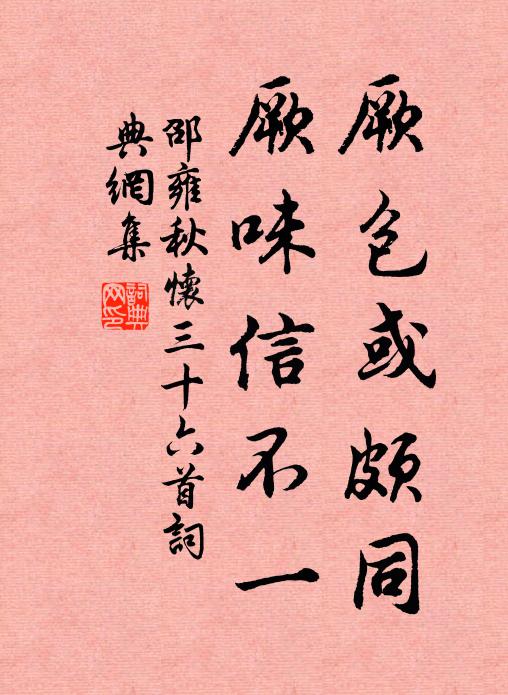 厥色或頗同
厥味信不一
邵雍秋懷三十六首詞
典網集
詞典網印